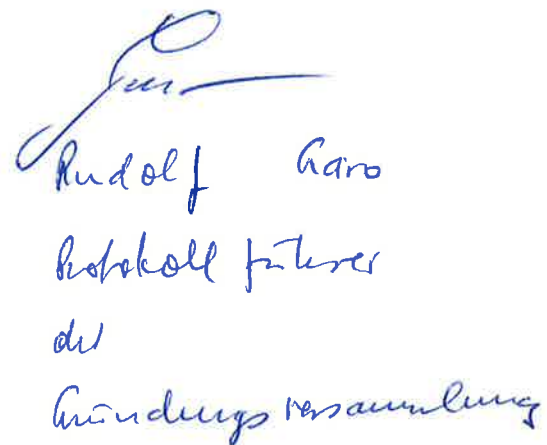 Rudolf Garo
Protokollführer
der
Gründungsversammlung